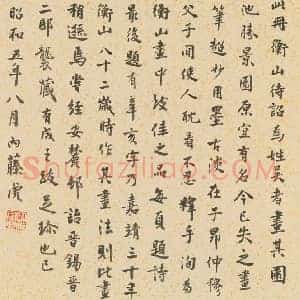 此册衡山待詔為姓吴者畫其園
池勝景圖原宜有名今已失之畫
筆超妙用墨古淡在子昂仲穆
父子間使人耽看不忍釋手洵為
衡山畫中致佳之品每頁題詩
最後題有辛亥字乃嘉靖三十年
衡山八十二歲時作其畫法則此畫
稍遜焉嘗經安麓邨詒晉錫晉
二邸襲藏有成王跋足珍也已
昭和五年八月内藤虎
Shufaziliao.com